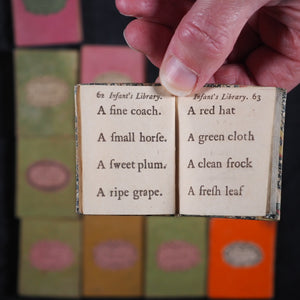 62 Infant's Library.
A fine coach.
A ſmall horſe.
A ſweet plum.
A ripe grape.
Infant's Library. 63
A red hat
A green cloth
A clean frock
A freſh leaf